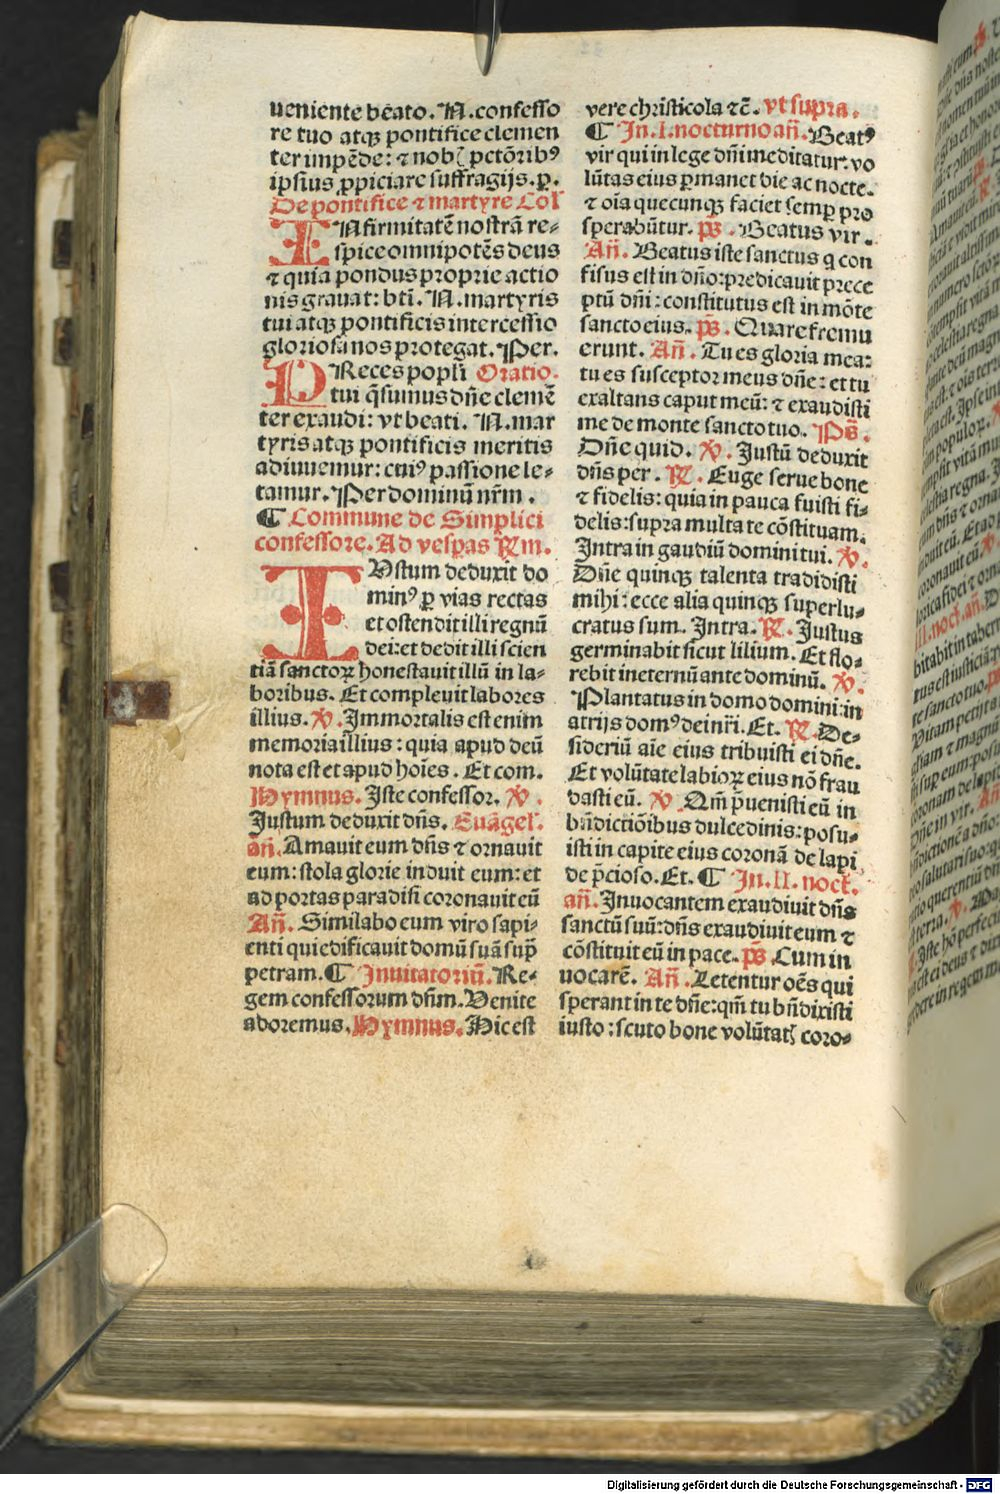 ueniente beato. N. confesso
re tuo atqꝫ pontifice clemen
ter impēde: ⁊ nob̄ pctōrib⁹
ipsius ꝓpiciare suffragijs. ꝑ.
De pontifice ⁊ martyre Col̄
INfirmitatē nostrā re⸗
spice omnipotēs deus
⁊ quia pondus proprie actio
nis grauat: bt̄i. N. martyris
tui atqꝫ pontificis intercessio
gloriosa nos protegat. Per.
PReces popl̄i Oratio.
tui q̄sumus dn̄e clemē
ter exaudi: vt beati. N. mar
tyris atqꝫ pontificis meritis
adiuuemur: cui⁹ passione le⸗
tamur. Per dominū nr̄m.
¶ Commune de Simplici
confessore. Ad vesꝑas R̄m.
IUstum deduxit do
min⁹ ꝑ vias rectas
et ostendit illi regnū
dei: et dedit illi scien
tiā sanctoꝝ honestauit illū in la⸗
boribus. Et compleuit labores
illius. ℣. Immortalis est enim
memoria illius: quia apud deū
nota est et apud hoīes. Et com.
Hymnus. Iste confessor. ℣.
Justum deduxit dn̄s. Euāgel̄.
an̄. Amauit eum dn̄s ⁊ ornauit
eum: stola glorie induit eum: et
ad portas paradisi coronauit eū
An̄. Similabo eum viro sapi⸗
enti qui edificauit domū suā sup̄
petram. ¶ Inuitatoriū. Re⸗
gem confessorum dn̄m. Venite
adoremus. Hymnus. Hic est
vere christicola ⁊c̄. vt supra.
¶ In. I. nocturno an̄. Beat⁹
vir qui in lege dn̄i meditatur: vo
lūtas eius ꝑmanet die ac nocte.
⁊ oīa quecunqꝫ faciet semꝑ pro
sperabūtur. ps̄. Beatus vir.
An̄. Beatus iste sanctus q con
fisus est in dn̄o: predicauit prece
ptū dn̄i: constitutus est in mōte
sancto eius. ps̄. Quare fremu
erunt. An̄. Tu es gloria mea:
tu es susceptor meus dn̄e: et tu
exaltans caput meū: ⁊ exaudisti
me de monte sancto tuo. Ps̄.
Dn̄e quid. ℣. Justū deduxit
dn̄s per. ℟. Euge serue bone
⁊ fidelis: quia in pauca fuisti fi⸗
delis: supra multa te cōstituam.
Intra in gaudiū domini tui. ℣.
Dn̄e quinqꝫ talenta tradidisti
mihi: ecce alia quinqꝫ superlu⸗
cratus sum. Intra. ℟. Justus
germinabit sicut lilium. Et flo⸗
rebit in eternū ante dominū. ℣.
Plantatus in domo domini: in
atrijs dom⁹ dei nr̄i. Et. ℟. De⸗
sideriū aīe eius tribuisti ei dn̄e.
Et volūtate labioꝝ eius nō frau
dasti eū. ℣. Qm̄ p̄uenisti eū in
bn̄dictiōibus dulcedinis: posu⸗
isti in capite eius coronā de lapi
de p̄cioso. Et. ¶ In. II. noct.
an̄. Inuocantem exaudiuit dn̄s
sanctū suū: dn̄s exaudiuit eum ⁊
cōstituit eū in pace. ps̄. Cum in
uocarē. An̄. Letentur oēs qui
sperant in te dn̄e: qm̄ tu bn̄dixisti
iusto: scuto bone volūtatꝭ coro⸗
Digitalisierung gefördert durch die Deutsche Forschungsgemeinschaft - DFG